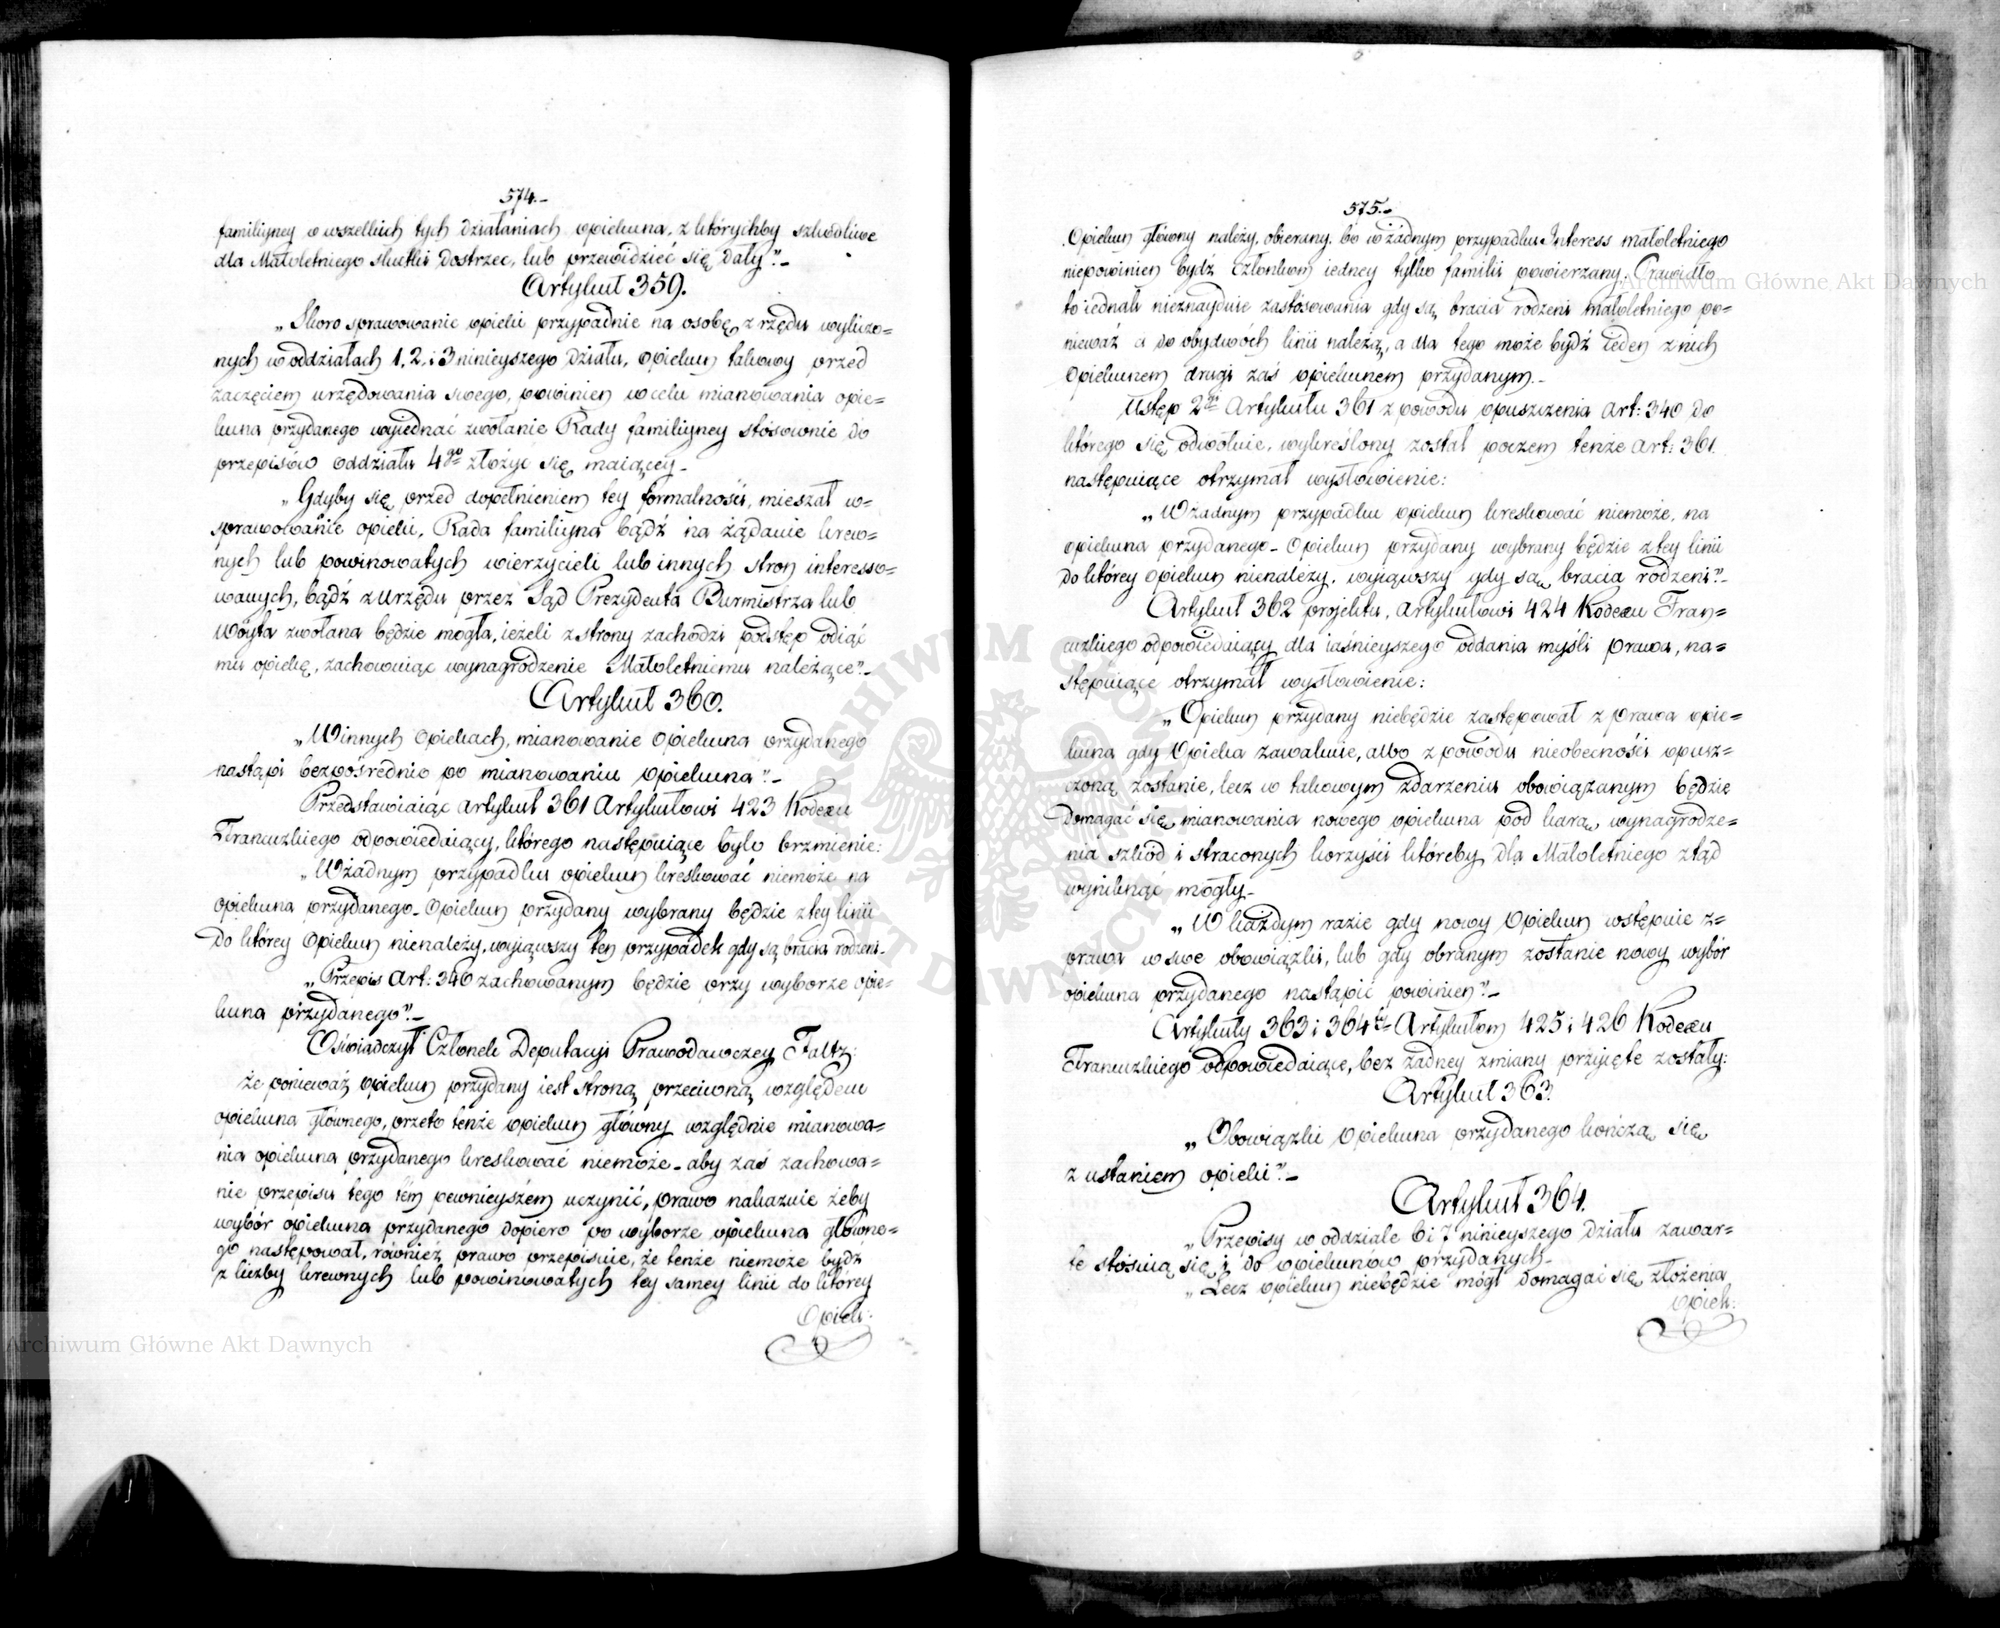 574.-
familiyney w wszelkich tych działaniach opiekuna, z którychby szkodliwe
dla Małoletniego skutki dostrzec, lub przewidzieć się dały".-
Artykuł 359.
„Skoro sprawowanie opieki przypadnie na osobę z rzędu wyliczo=
nych w oddziałach 1, 2, i 3 ninieyszego Działu, opiekun takowy przed
zaczęciem urzędowania swego, powinien w celu mianowania opie=
kuna przydanego wyiednać zwołanie Rady familiyney stosownie do
przepisów oddziału 4go złożyć się maiącey.-
„Gdyby się przed dopełnieniem tey formalności, mieszał w=
sprawowanie opieki, Rada familiyna bądź na żądanie krew=
nych lub powinowatych wierzycieli lub innych stron interesso=
wanych, bądź z urzędu przez Sąd Prezydenta Burmistrza lub
Woyta zwołana będzie mogła, ieżeli z strony zachodzi podstęp odiąć
mu opiekę, zachowuiąc wynagrodzenie Małoletniemu należące".-
Artykuł 360.
„W innych opiekach, mianowanie opiekuna przydanego
nastąpi bezpośrednio po mianowaniu opiekuna".-
Przedstawiaiąc artykuł 361 Artykułowi 423 Kodexu
Francuzkiego odpowiedaiący, którego następuiące było brzmienie:
„W żadnym przypadku opiekun kreskować niemoże na
opiekuna przydanego. Opiekun przydany wybrany będzie z tey linii
do którey opiekun nienależy, wyiąwszy ten przypadek gdy są bracia rodzeni.
„Przepis Art: 340 zachowanym będzie przy wyborze opie=
kuna przydanego".-
Oświadczył Członek Deputacyi Prawodawczey Faltz:
że ponieważ opiekun przydany iest stroną przeciwną względem
opiekuna głównego, przeto tenże opiekun główny względnie mianowa=
nia opiekuna przydanego kreskować niemoże - aby zaś zachowa=
nie przepisu tego tém pewnieyszém uczynić, prawo nakazuie żeby
wybór opiekuna przydanego dopiero po wyborze opiekuna główne=
go następował, również prawo przepisuie, że tenże niemoże bydź
z liczby krewnych lub powinowatych tey samey linii do którey
Opiek:
575.-
Opiekun główny należy, obierany, bo w żadnym przypadku Interess małoletniego
niepowinien bydź członkom iedney tylko familii powierzany. Prawidło
to iednak nieznayduie zastosowania gdy są bracia rodzeni małoletniego po=
nieważ ci do obydwóch linii należą, a dla tego może bydź ieden z nich
Opiekunem drugi zaś opiekunem przydanym.-
Ustęp 2gi Artykułu 361 z powodu opuszczenia Art: 340 do
którego się odwołuie, wykreślony został poczem tenże Art: 361.
następuiące otrzymał wysłowienie:
„W żadnym przypadku opiekun kreskować niemoże, na
opiekuna przydanego - Opiekun przydany wybrany będzie z tey linii
do którey opiekun nienależy, wyiąwszy gdy są bracia rodzeni".-
Artykuł 362 projektu, Artykułowi 424 Kodexu Fran=
cuzkiego odpowiedaiący dla iaśnieyszego oddania myśli prawa, na=
stępuiące otrzymał wysłowienie:
„Opiekun przydany niebędzie zastępował z prawa opie=
kuna gdy opieka zawakuie, albo z powodu nieobecności opusz=
czoną zostanie, lecz w takowym zdarzeniu obowiązanym będzie
domagać się mianowania nowego opiekuna pod karą wynagrodze=
nia szkód i straconych korzyści któreby dla Małoletniego ztąd
wyniknąć mogły.-
„W każdym razie gdy nowy opiekun wstępuie z=
prawa w swe obowiązki, lub gdy obranym zostanie nowy wybór
opiekuna przydanego nastąpić powinien".-
Artykuły 363 i 364ty Artykułom 425 i 426 Kodexu
Francuzkiego odpowiedaiące, bez żadney zmiany przyięte zostały:
Artykuł 363.
„Obowiązki opiekuna przydanego kończą się
z ustaniem opieki".-
Artykuł 364.
„Przepisy w oddziale 6 i 7 ninieyszego działu zawar=
te stosuią się i do opiekunów przydanych.-
„Lecz opiekun niebędzie mógł domagać się złożenia
opiek:
Archiwum Główne Akt Dawnych
Archiwum Główne Akt Dawnych
ARCHIWUM GŁÓWNE AKT DAWNYCH